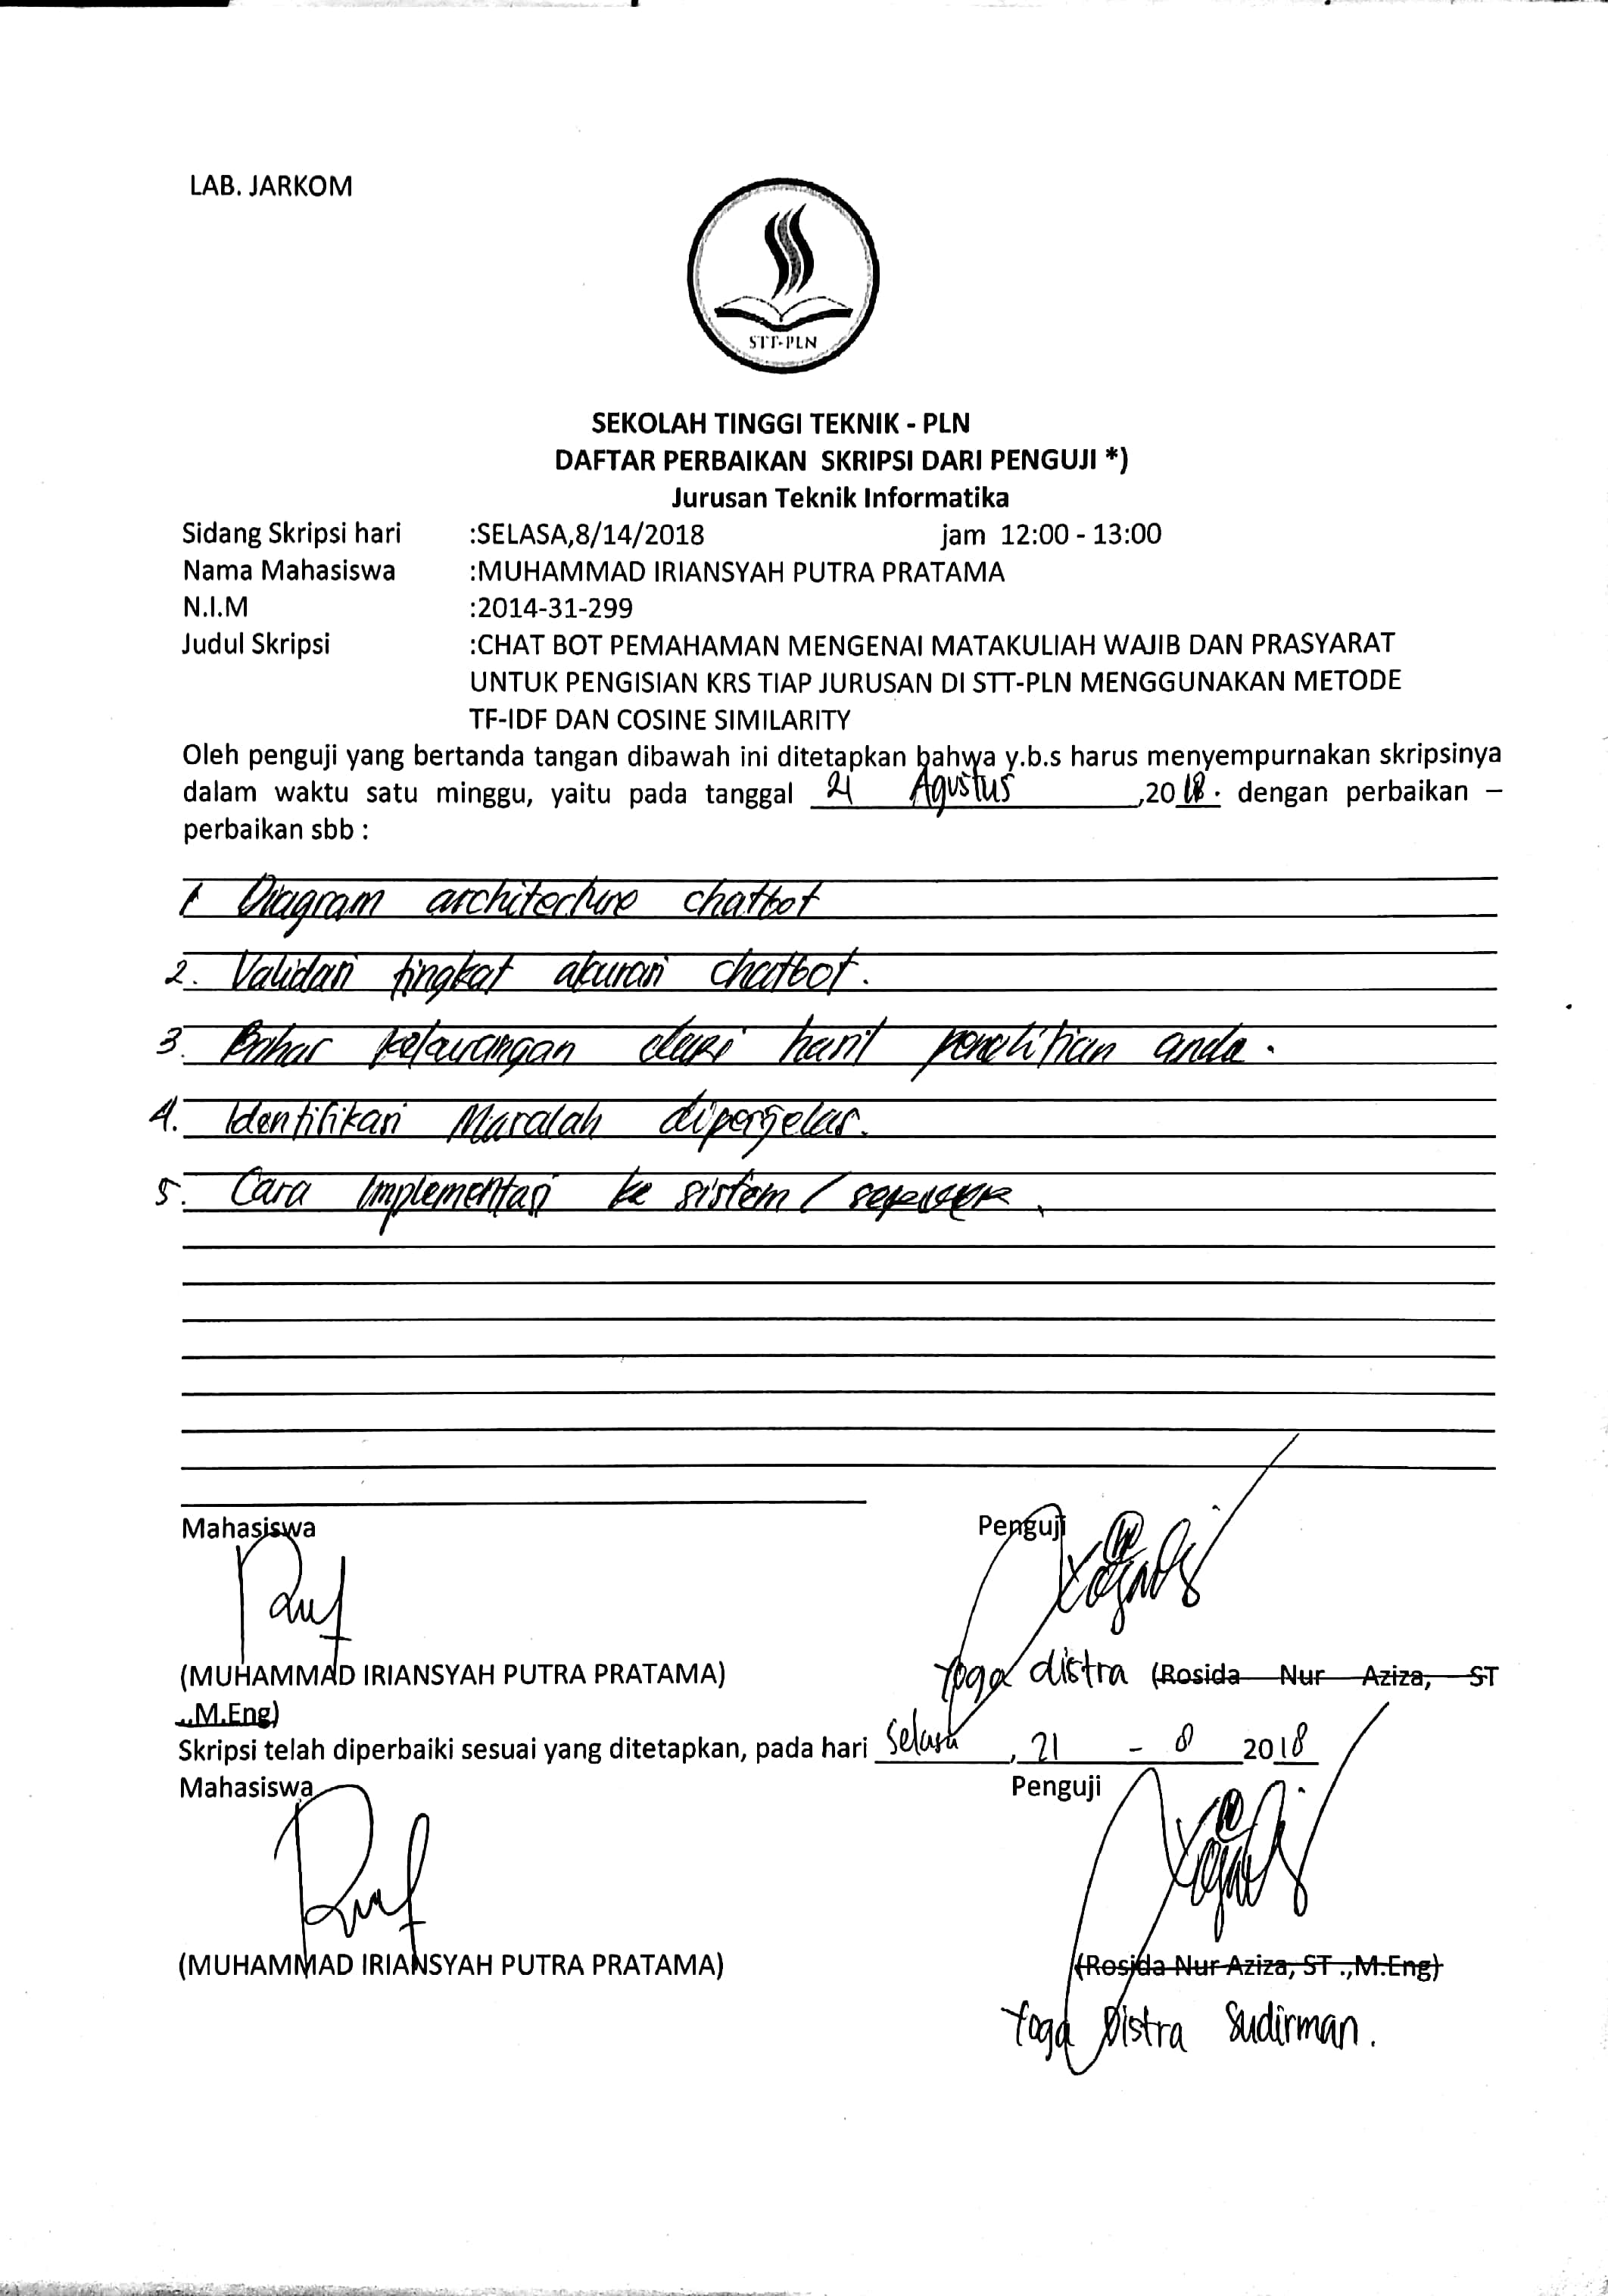 LAB. JARKOM
STT-PLN
SEKOLAH TINGGI TEKNIK - PLN
DAFTAR PERBAIKAN SKRIPSI DARI PENGUJI *)
Jurusan Teknik Informatika
Sidang Skripsi hari :SELASA,8/14/2018 jam 12:00 - 13:00
Nama Mahasiswa :MUHAMMAD IRIANSYAH PUTRA PRATAMA
N.I.M :2014-31-299
Judul Skripsi :CHAT BOT PEMAHAMAN MENGENAI MATAKULIAH WAJIB DAN PRASYARAT
UNTUK PENGISIAN KRS TIAP JURUSAN DI STT-PLN MENGGUNAKAN METODE
TF-IDF DAN COSINE SIMILARITY
Oleh penguji yang bertanda tangan dibawah ini ditetapkan bahwa y.b.s harus menyempurnakan skripsinya
dalam waktu satu minggu, yaitu pada tanggal 21 Agustus ,20 18. dengan perbaikan –
perbaikan sbb :
1 Diagram architecture chatbot
2. Validasi tingkat akurasi chatbot.
3. Bahas kekurangan dari hasil penelitian anda.
4. Identifikasi Masalah diperjelas.
5. Cara Implementasi ke sistem /
Mahasiswa Penguji
(MUHAMMAD IRIANSYAH PUTRA PRATAMA) Yoga distra (Rosida Nur Aziza, ST
.,M.Eng)
Skripsi telah diperbaiki sesuai yang ditetapkan, pada hari Selasa , 21 - 8 2018
Mahasiswa Penguji
(MUHAMMAD IRIANSYAH PUTRA PRATAMA) (Rosida Nur Aziza, ST .,M.Eng)
Yoga Distra Sudirman.